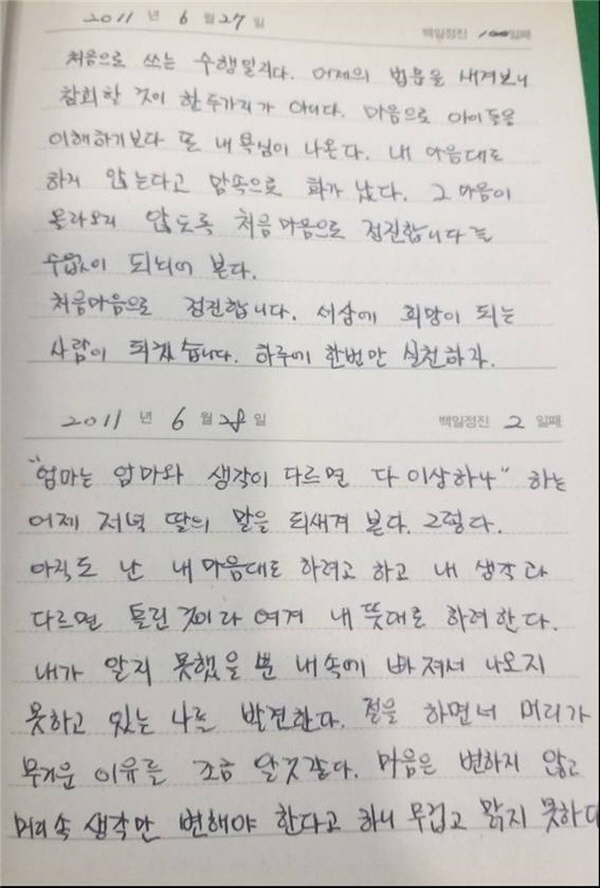 2011 년 6 월 27 일 백일정진 일째
처음으로 쓰는 수행일지다. 어제의 법문을 새겨보니
참회할 것이 한두가지가 아니다. 마음으로 아이들을
이해하기보다 또 내 욕심이 나온다. 내 마음대로
하지 않는다고 맘속으로 화가 났다. 그 마음이
올라오지 않도록 처음 마음으로 정진합니다를
수없이 되뇌어 본다.
처음마음으로 정진합니다. 세상에 희망이 되는
사람이 되겠습니다. 하루에 한번만 실천하자.
2011 년 6 월 28 일 백일정진 2 일째
"엄마는 엄마와 생각이 다르면 다 이상하냐" 하는
어제 저녁 딸의 말을 되새겨 본다. 그렇다.
아직도 난 내 마음대로 하려고 하고 내 생각과
다르면 틀린 것이라 여겨 내 뜻대로 하려 한다.
내가 알지 못했을 뿐 내 속에 빠져서 나오지
못하고 있는 나를 발견한다. 절을 하면서 머리가
무거운 이유를 조금 알것 같다. 마음은 변하지 않고
머리 속 생각만 변해야 한다고 하니 무겁고 맑지 못하다